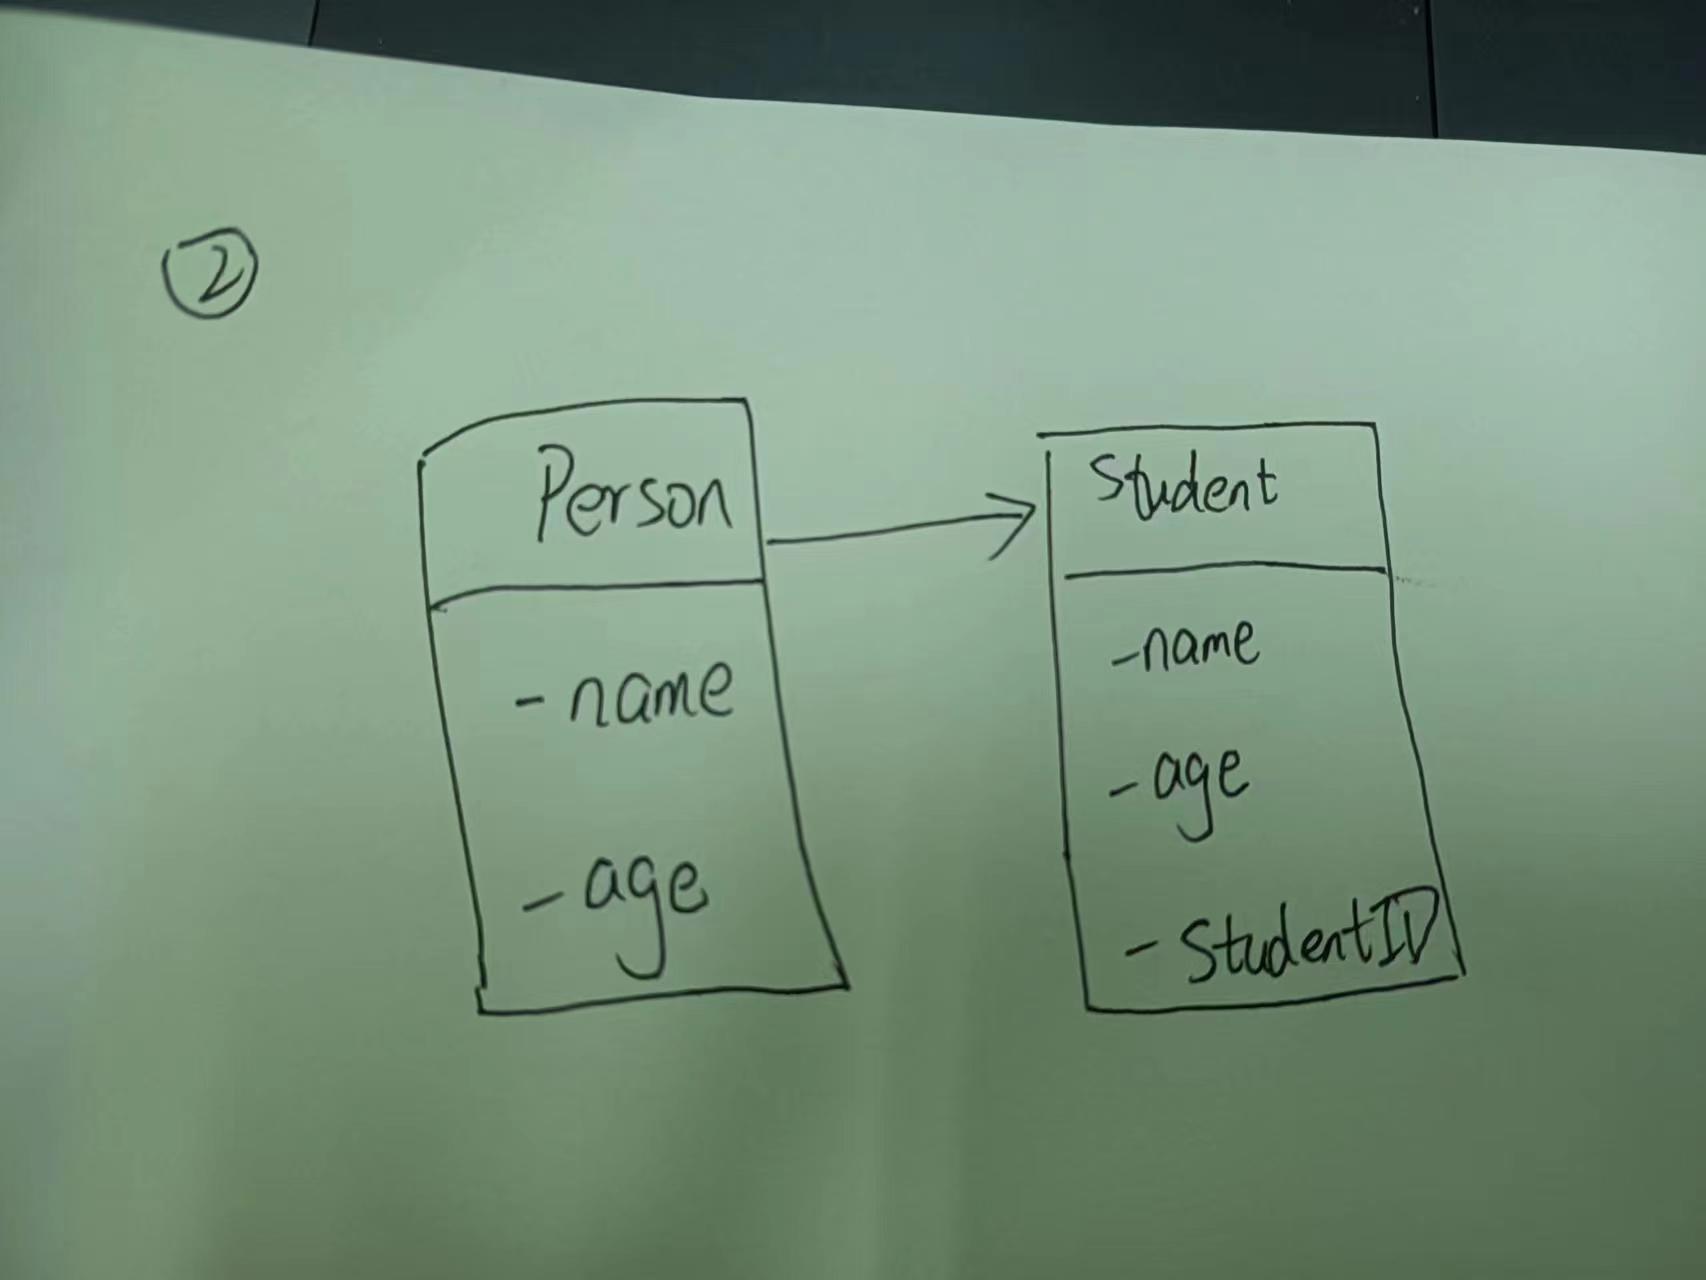 ②
Person
- name
- age
Student
- name
- age
- StudentID